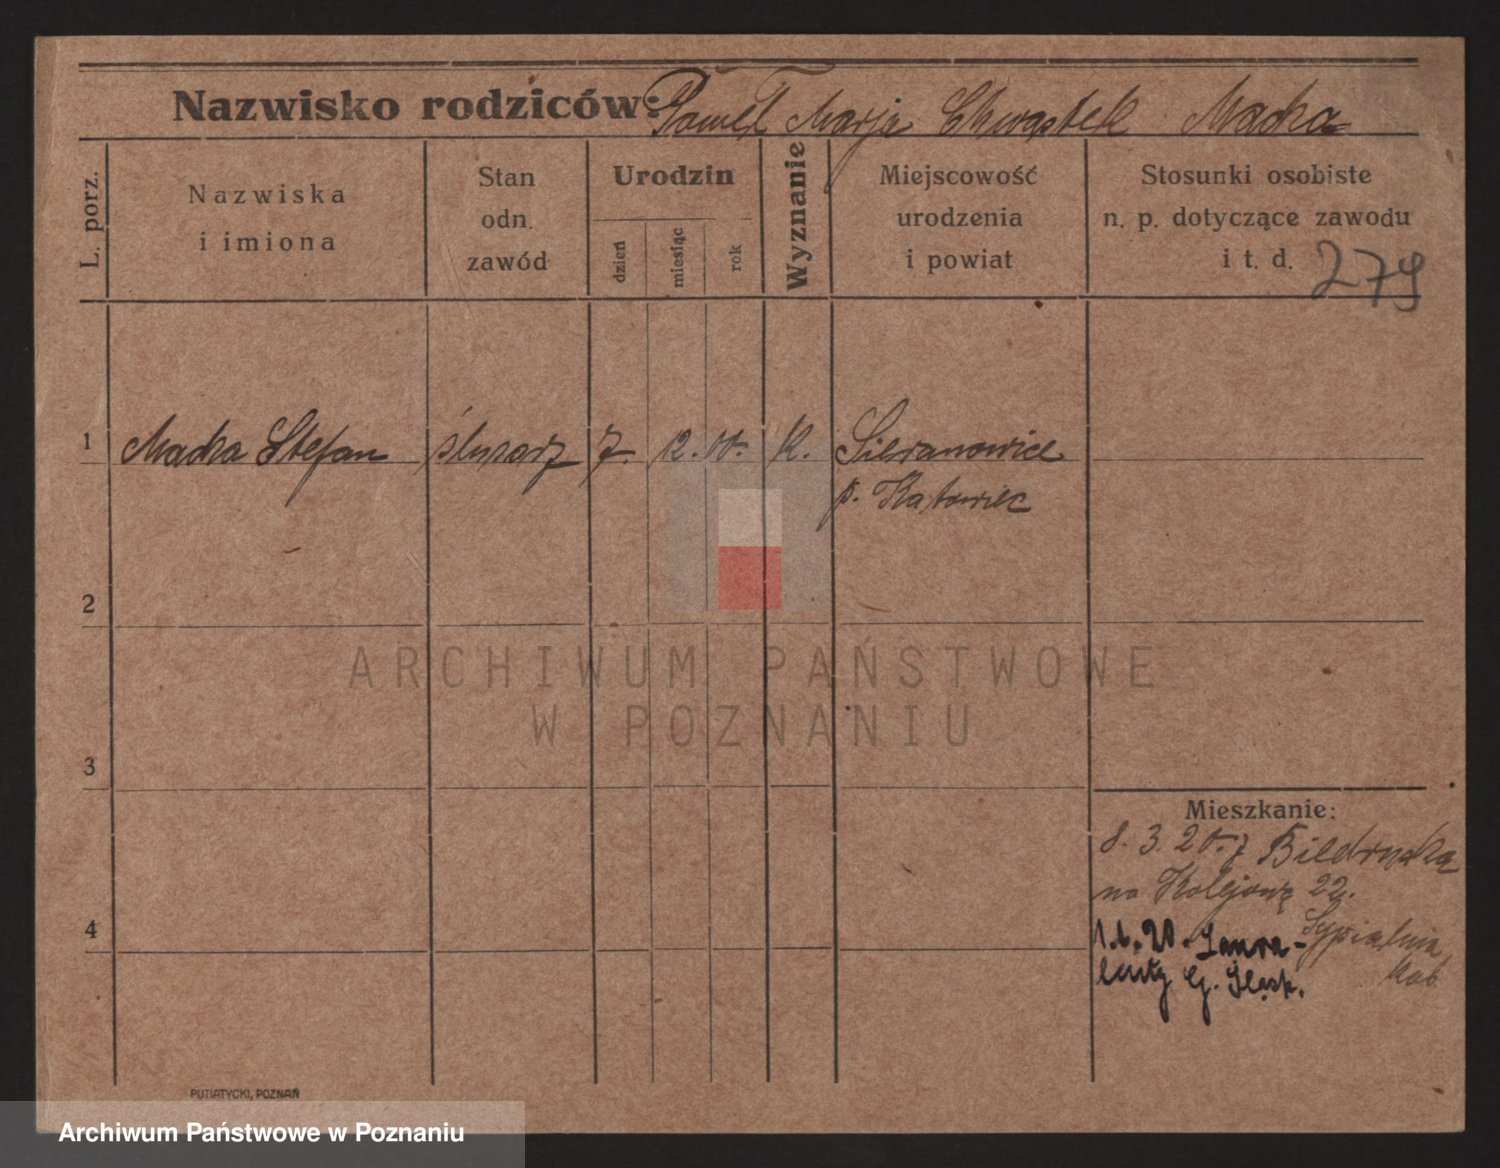 Nazwisko rodziców: Paweł Marja Chwastek Macha
L. porz.
Nazwiska
i imiona
Stan
odn.
zawód
Urodzin
dzień
miesiąc
rok
Wyznanie
Miejscowość
urodzenia
i powiat
Stosunki osobiste
n. p. dotyczące zawodu
i t. d.
279
1 Macha Stefan ślusarz 7. 12. 00. K. Siemanowice
p. Katowiec
2
ARCHIWUM PAŃSTWOWE
W POZNANIU
3
Mieszkanie:
8. 3. 20. z Biedruska
na Kolejową 22.
Sypialnia
1.6.20. Laura-
4
kob.
hutę G. Śląsk.
PUTIATYCKI, POZNAŃ
Archiwum Państwowe w Poznaniu